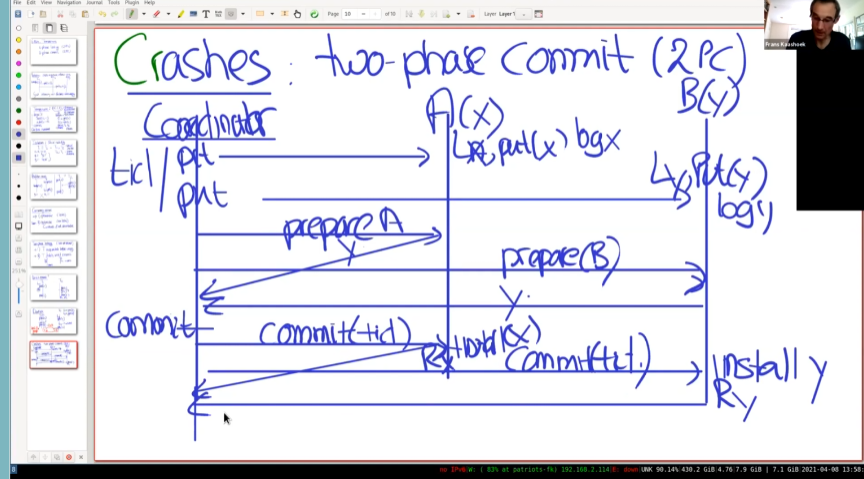 File Edit View Journal Tools Plugin Help
Page 10 of 10 Layer Layer 1
Frans Kaashoek
Crashes: two-phase commit (2PC)
Coordinator A(x) B(y)
tid/ put Lx, put(x) log x
put Ly Put(y) log y
prepare A
y
prepare(B)
y.
Commit
commit(tid) Rx install(x)
Commit(tid.) install y
Ry
192.168.2.114 UNK 90.14% 430.2 GiB 4.76 7.9 GiB | 7.1 GiB 2021-04-08 13:58: